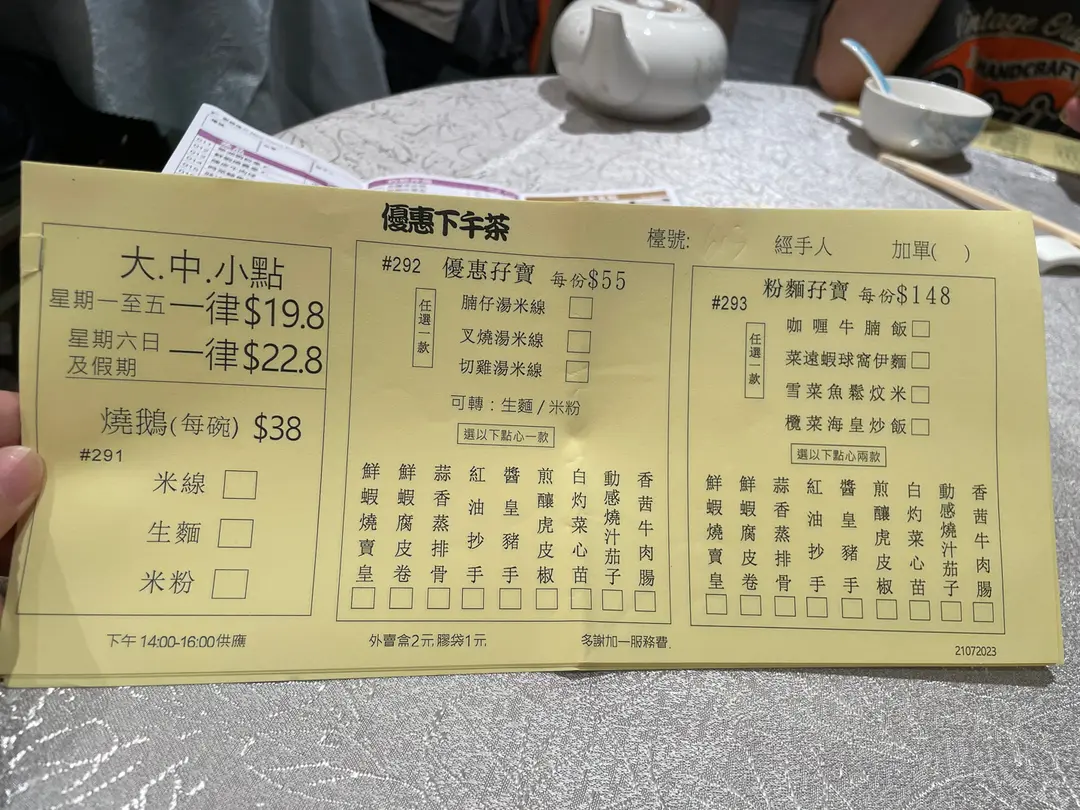 優惠下午茶
檯號:
經手人
加單( )
大.中.小點
星期一至五 一律$19.8
星期六日及假期 一律$22.8
燒鵝(每碗) $38
#291
米線
生麵
米粉
#292 優惠孖寶 每份$55
任選一款
腩仔湯米線
叉燒湯米線
切雞湯米線
可轉：生麵/米粉
選以下點心一款
鮮蝦燒賣皇
鮮蝦腐皮卷
蒜香蒸排骨
紅油抄手
醬皇豬手
煎釀虎皮椒
白灼菜心苗
動感燒汁茄子
香茜牛肉腸
#293 粉麵孖寶 每份$148
任選一款
咖喱牛腩飯
菜遠蝦球窩伊麵
雪菜魚鬆炆米
欖菜海皇炒飯
選以下點心兩款
鮮蝦燒賣皇
鮮蝦腐皮卷
蒜香蒸排骨
紅油抄手
醬皇豬手
煎釀虎皮椒
白灼菜心苗
動感燒汁茄子
香茜牛肉腸
下午 14:00-16:00供應
外賣盒2元 膠袋1元
多謝加一服務費.
21072023
Vintage
HANDCRAFT